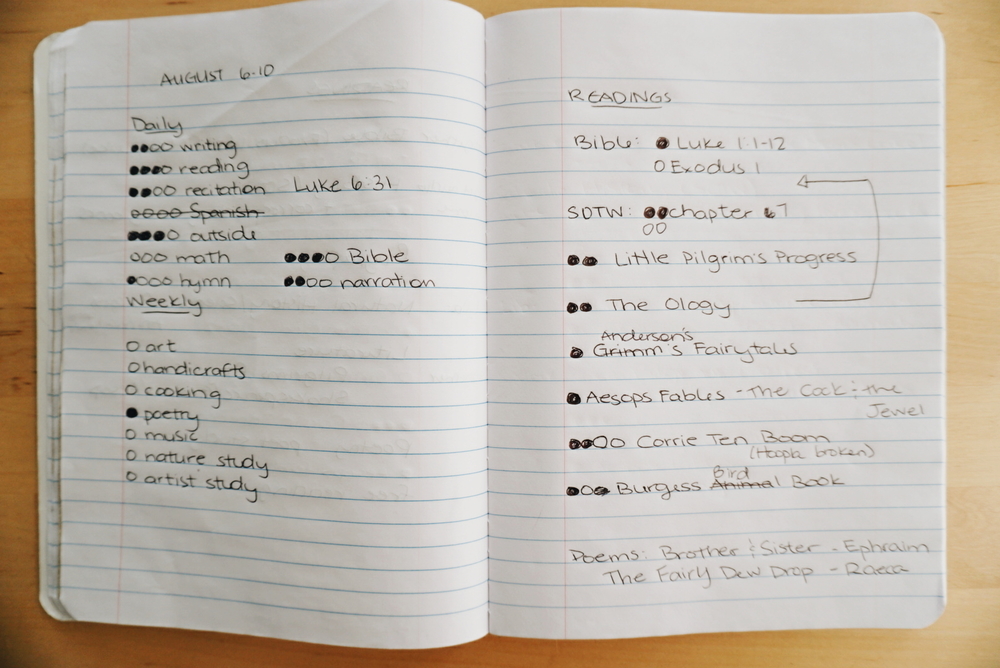 AUGUST 6-10
Daily
●●○○ writing
●●●○ reading
●●○○ recitation Luke 6:31
○○○○ Spanish
●●●○ outside
○○○ math ●●●○ Bible
●○○○ hymn ●●○○ narration
Weekly
○ art
○ handicrafts
○ cooking
● poetry
○ music
○ nature study
○ artist study
READINGS
Bible: ● Luke 1:1-12
○ Exodus 1
SOTW: ●● chapter 7
○○
●● Little Pilgrim's Progress
●● The Ology
Anderson's
● Grimm's Fairytales
● Aesops Fables - The Cock & the
Jewel
●●○○ Corrie Ten Boom
(Hoopla broken)
Bird
●○● Burgess Animal Book
Poems: Brother & Sister - Ephraim
The Fairy Dew Drop - Raeca